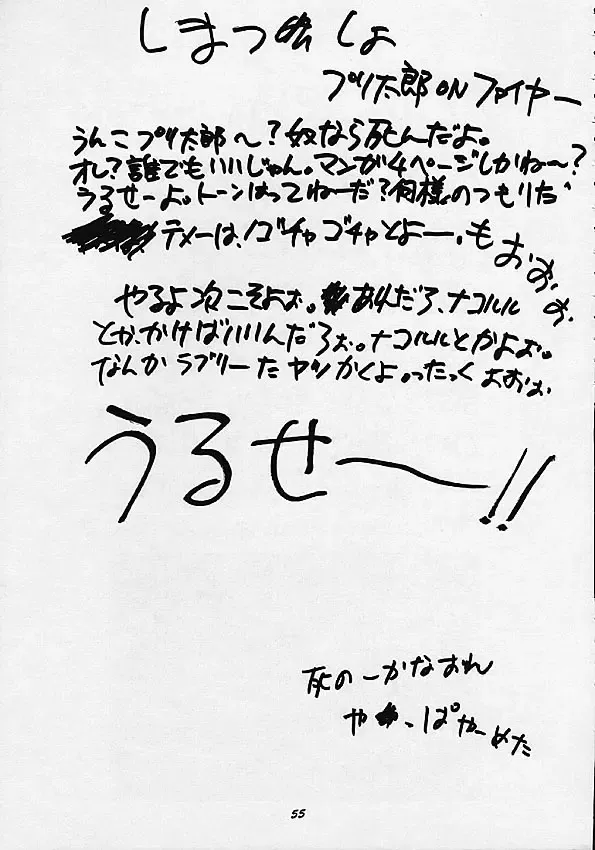 しまつ しょ
プリ太郎 ON ファイヤー
うんこプリ太郎〜?奴なら死んだよ。
オレ?誰でもいいじゃん。マンガ4ページしかね〜?
うるせーよ。トーンはってねーだ?何様のつもりだ
テメーは、ゴチャゴチャとよー、も
おぉぉぉ。
やるよ次こそよぉ。あれだろ、ナコルル
とか、かけばいいんだろぉ。ナコルルとかよぉ。
なんかラブリーなヤツかくよ。ったく よおぉぉ
うるせ〜!!
灰の
や っぱやーめた
55